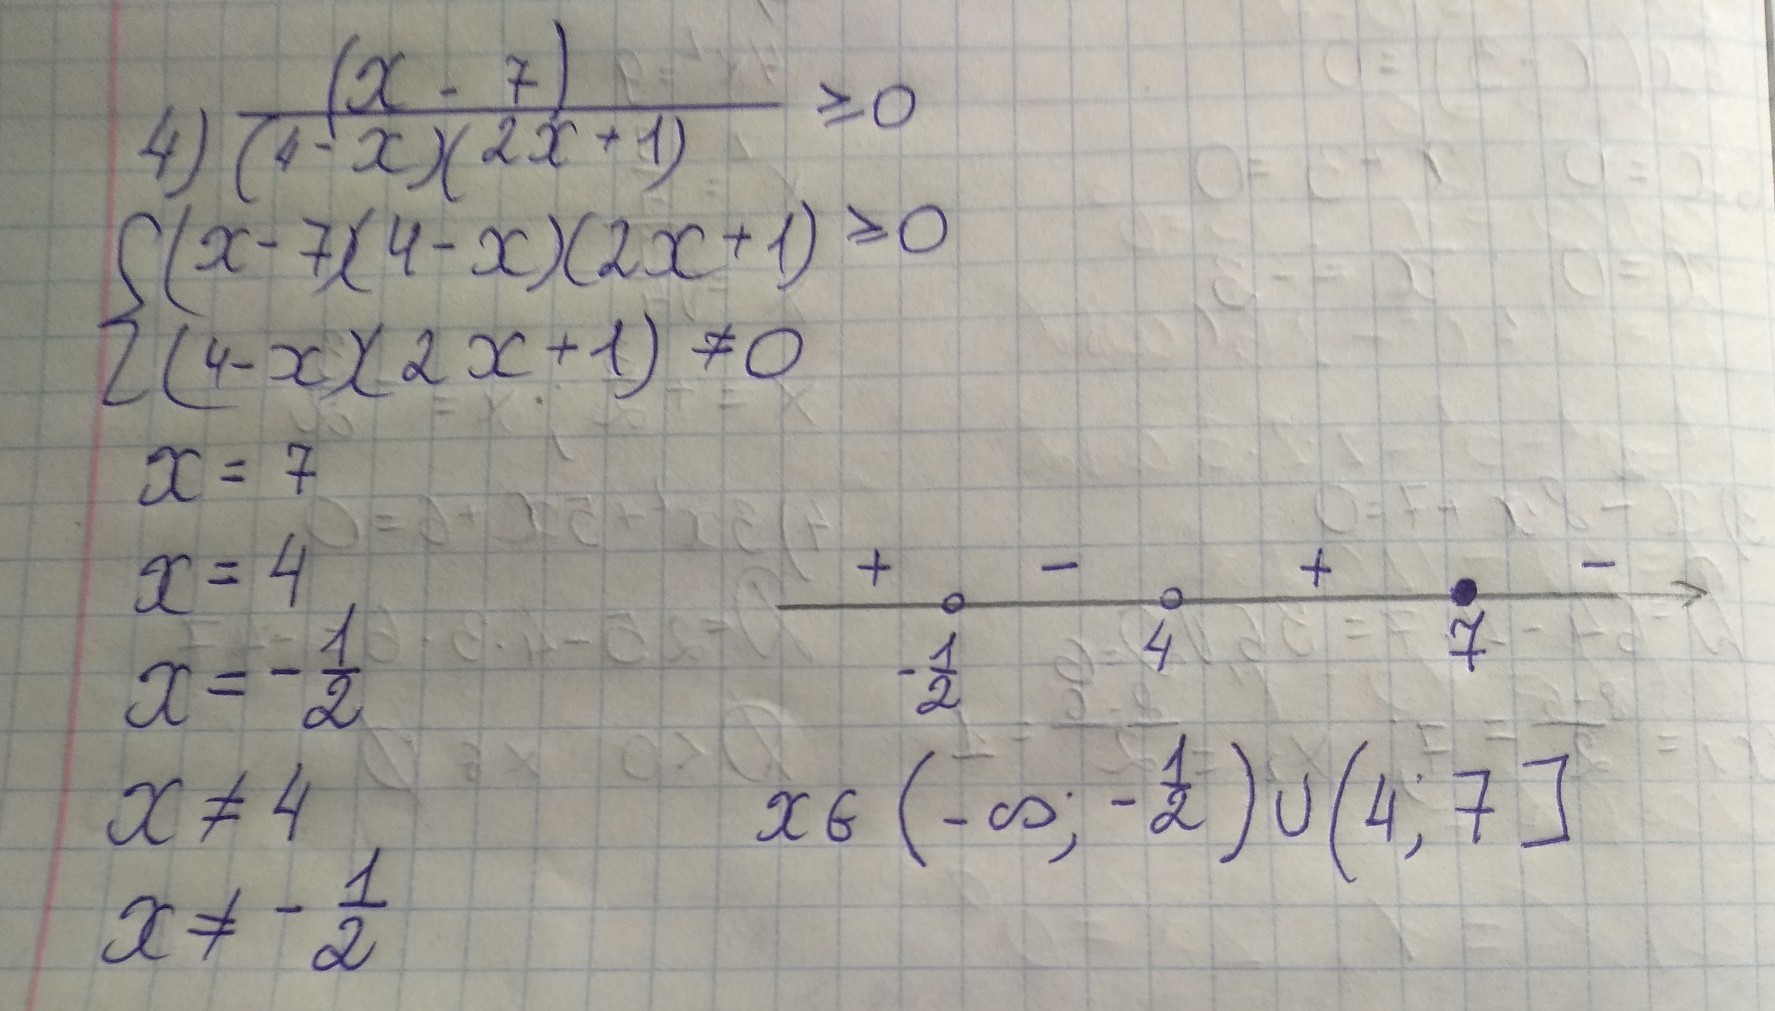 4) (x - 7) / (4-x)(2x+1) ≥0
{ (x-7)(4-x)(2x+1) ≥0
(4-x)(2x+1) ≠0
x = 7
x = 4
x = -1/2
x ≠ 4
x ≠ -1/2
+ - + -
-1/2 4 7
x ∈ (-∞; -1/2) ∪ (4; 7]